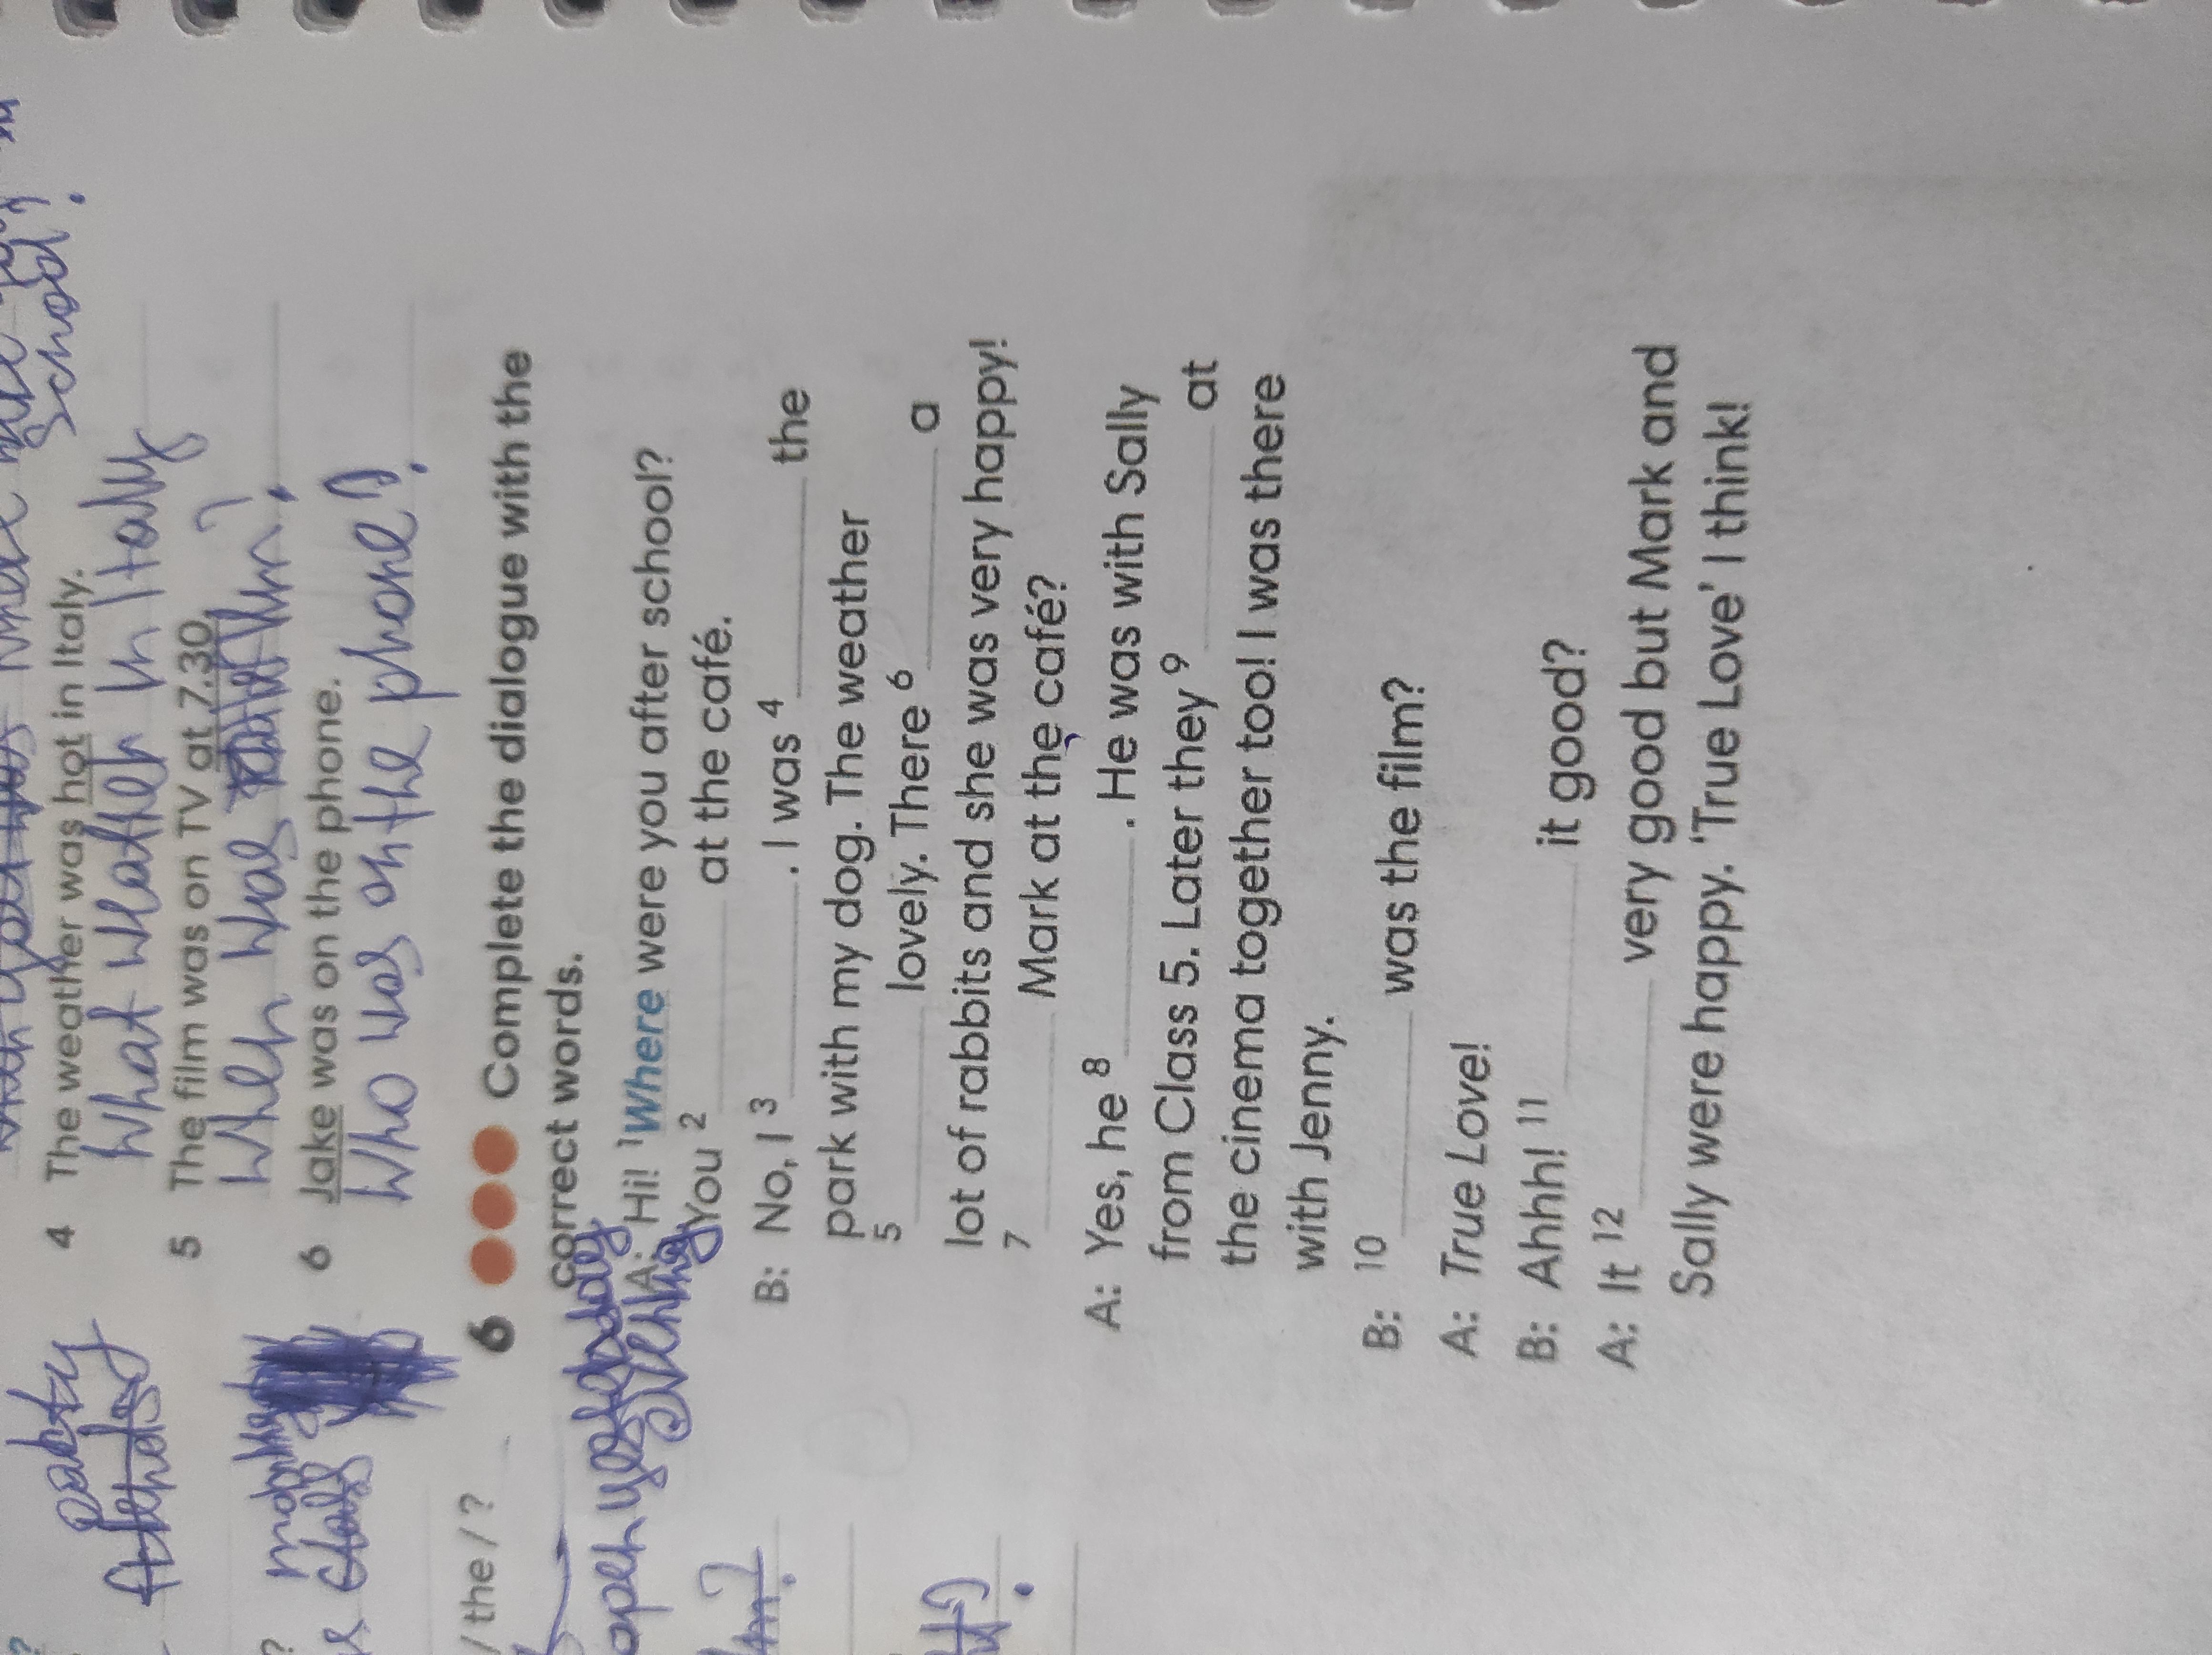 school?
4 The weather was hot in Italy.
What weather in Italy
5 The film was on TV at 7.30.
When was
6 Jake was on the phone.
Who was on the phone?
party
/ the / ?
6 Complete the dialogue with the
correct words.
A: Hi! 1 Where were you after school?
You 2 at the café.
B: No, I 3 . I was 4 the
park with my dog. The weather
5 lovely. There 6 a
lot of rabbits and she was very happy!
7 Mark at the café?
A: Yes, he 8 . He was with Sally
from Class 5. Later they 9 at
the cinema together too! I was there
with Jenny.
B: 10 was the film?
A: True Love!
B: Ahhh! 11 it good?
A: It 12 very good but Mark and
Sally were happy. 'True Love' I think!
open yesterday
evening